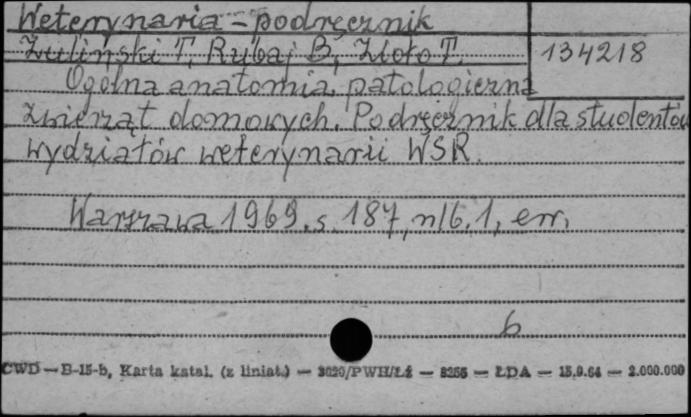 Weterynaria - podręcznik
Żuliński T, Rybaj B, Złoto T. 134218
Ogólna anatomia patologiczna
zwierząt domowych. Podręcznik dla studentów
wydziałów weterynarii WSR.
Warszawa 1969, s. 187, nlb. 1, err.
b
CWD — B-15-b, Karta katal. (z liniat.) — 3020/PWH/Łź — 8255 — ŁDA — 15.9.64 — 2.000.000